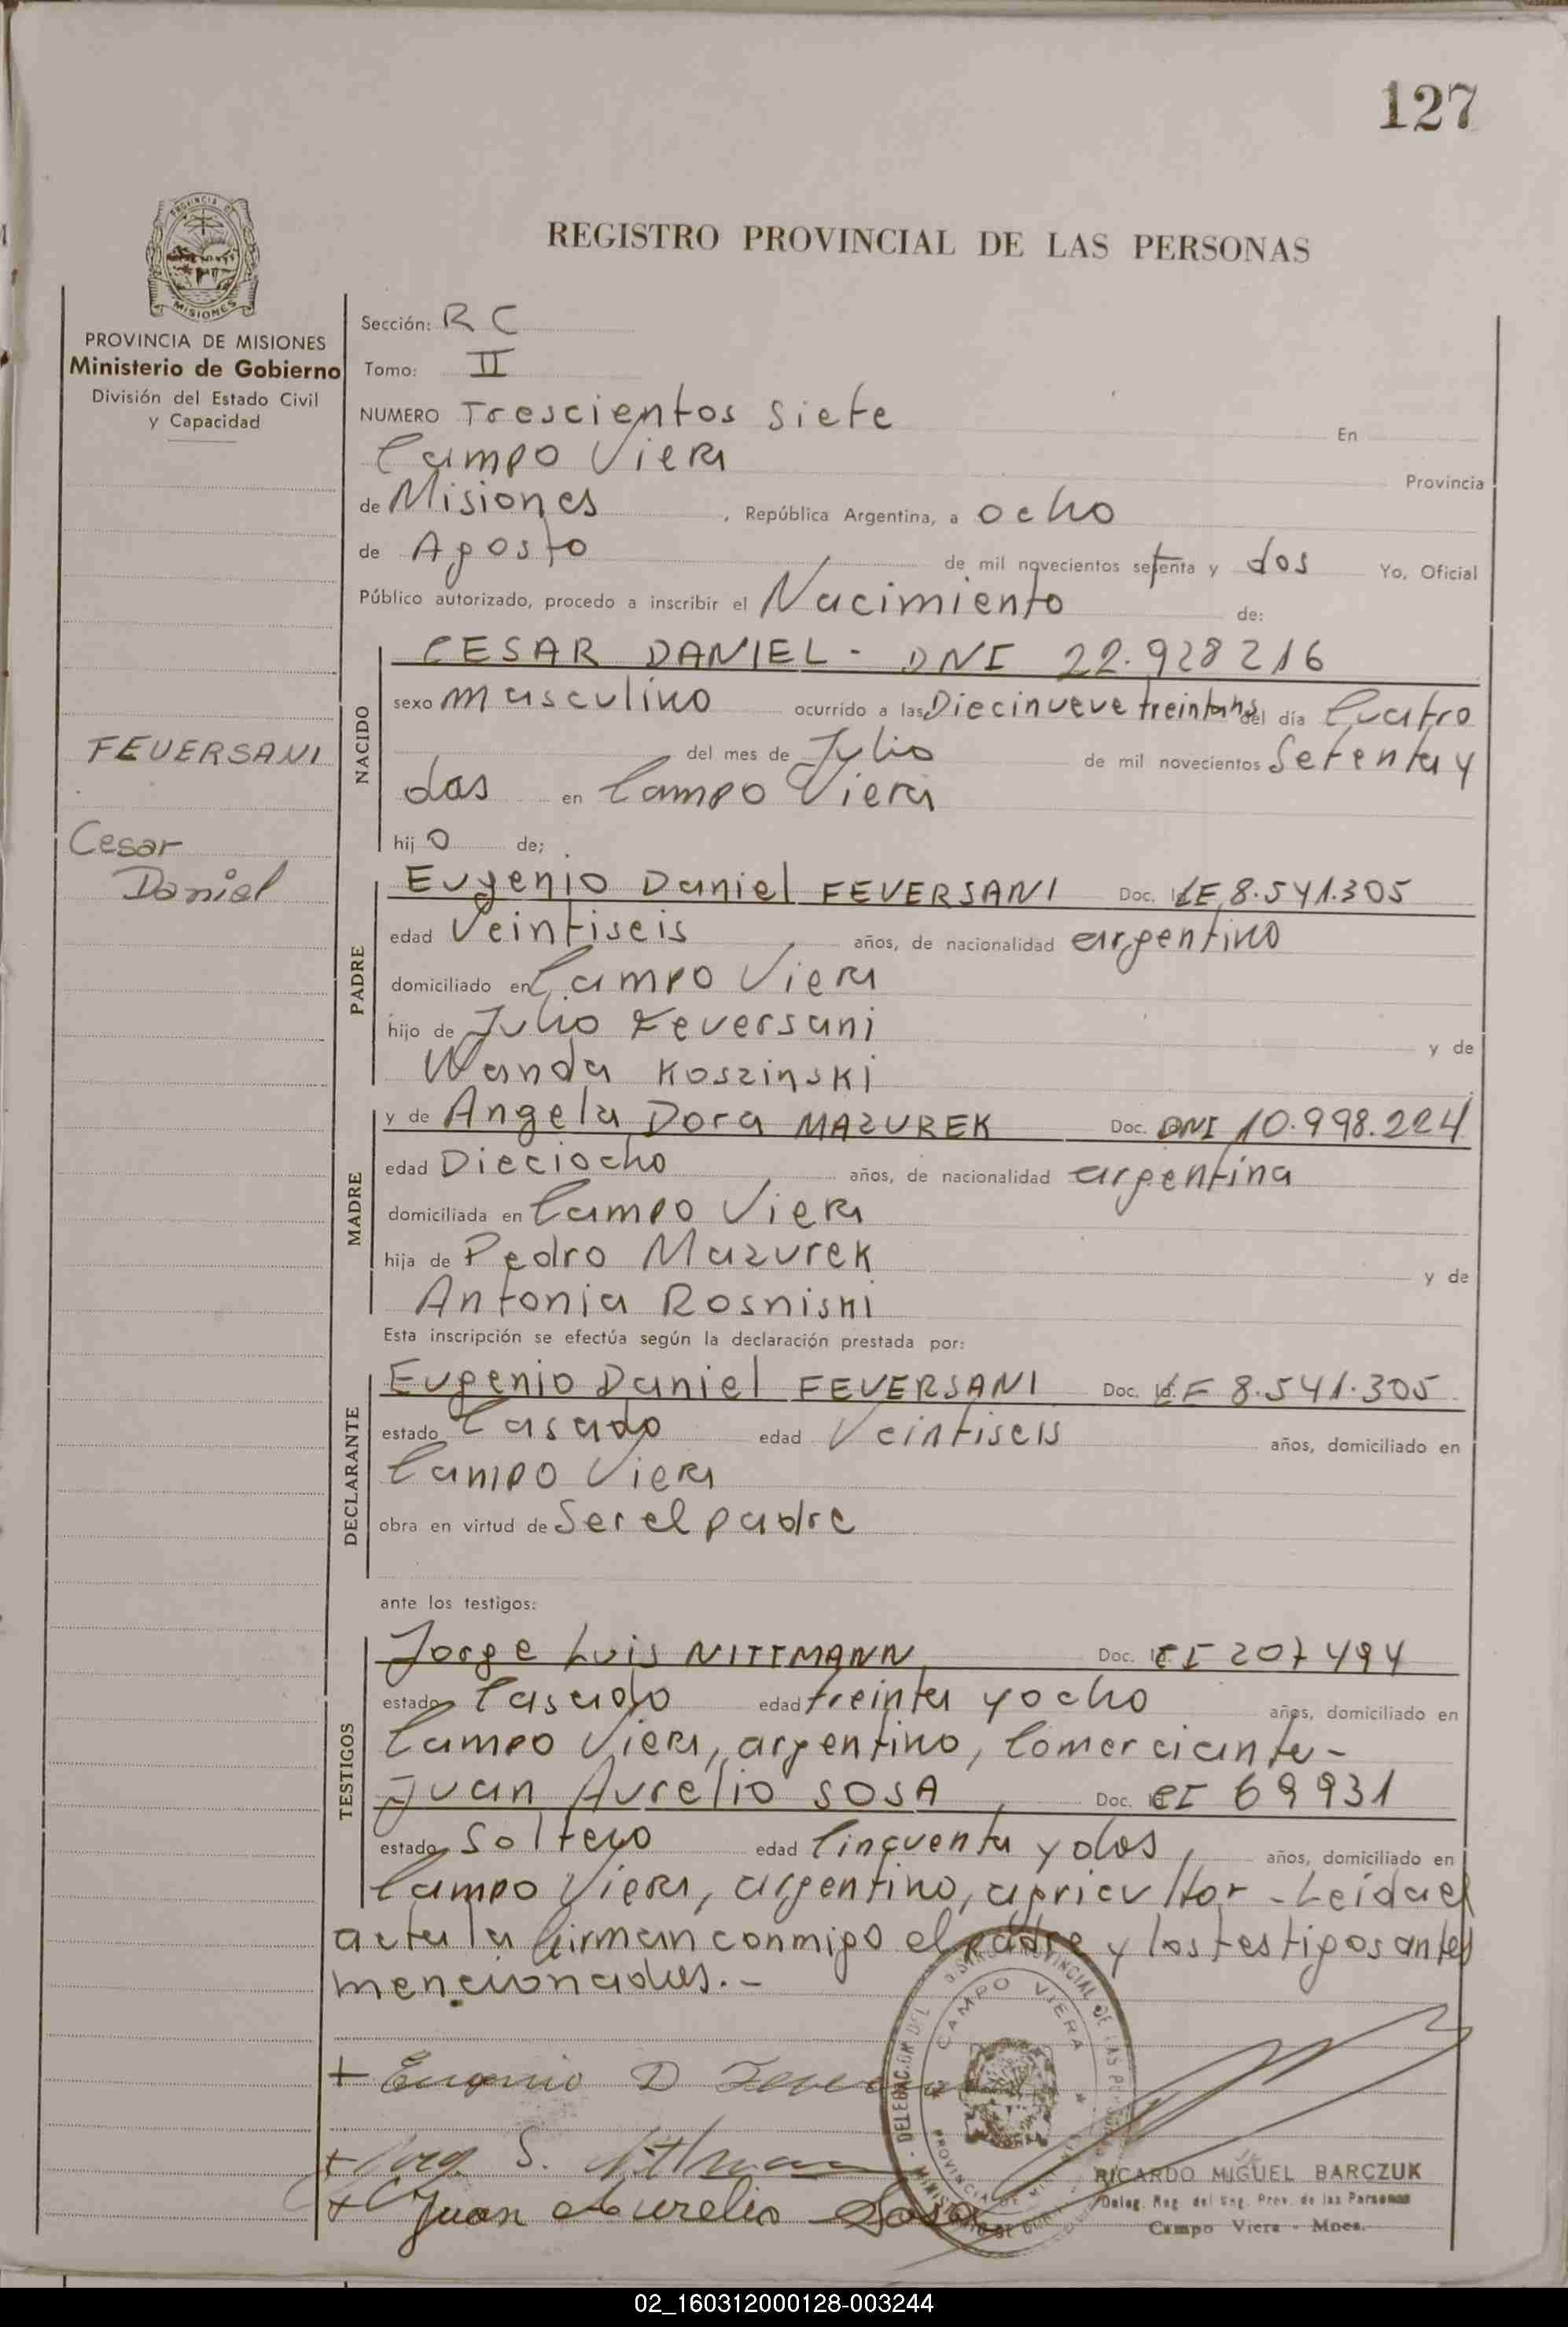 127
REGISTRO PROVINCIAL DE LAS PERSONAS
MISIONES
PROVINCIA DE MISIONES
Ministerio de Gobierno
División del Estado Civil
y Capacidad
FEUERSANI
Cesar
Daniel
Sección: R C
Tomo: II
NUMERO Trescientos Siete En
Campo Viera Provincia
de Misiones, República Argentina, a ocho
de Agosto de mil novecientos setenta y dos Yo, Oficial
Público autorizado, procedo a inscribir el Nacimiento de:
NACIDO
CESAR DANIEL - DNI 22.928216
sexo masculino ocurrido a las Diecinueve treinta hs del día Cuatro
del mes de Julio de mil novecientos Setenta y
dos en Campo Viera
hijo de;
PADRE
Eugenio Daniel FEVERSANI Doc. LE 8.541.305
edad Veintiseis años, de nacionalidad argentino
domiciliado en Campo Viera
hijo de Julio Feversani y de
Wanda Koszinski
MADRE
y de Angela Dora MAZUREK Doc. DNI 10.998.224
edad Dieciocho años, de nacionalidad argentina
domiciliada en Campo Viera
hija de Pedro Mazurek y de
Antonia Rosniski
Esta inscripción se efectúa según la declaración prestada por:
DECLARANTE
Eugenio Daniel FEVERSANI Doc. LE 8.541.305
estado Casado edad Veintiseis años, domiciliado en
Campo Viera
obra en virtud de Ser el padre
ante los testigos:
TESTIGOS
Jorge Luis NITTMANN Doc. CI 207494
estado Casado edad treinta y ocho años, domiciliado en
Campo Viera, argentino, Comerciante-
Juan Aurelio SOSA, Doc. CI 69931
estado Soltero edad Cincuenta y dos, años, domiciliado en
Campo Viera, argentino, agricultor - Leida el
acta la firman conmigo el padre y los testigos antes
mencionados.-
+ Eugenio D
+ Jorg
+ Juan Aurelio Sosa
CAMPO VIERA
RICARDO MIGUEL BARCZUK
Deleg. Reg. del Reg. Prov. de las Personas
Campo Viera - Mnes.
02_160312000128-003244